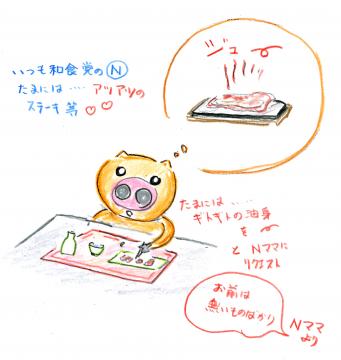 ジュー
いつも和食党のⓃ
たまには‥‥アツアツの
ステーキ等♡♡
たまには‥‥
ギトギトの油身
を〜
とNママに
リクエスト
お前は
悪いものばかり
Nママ
より